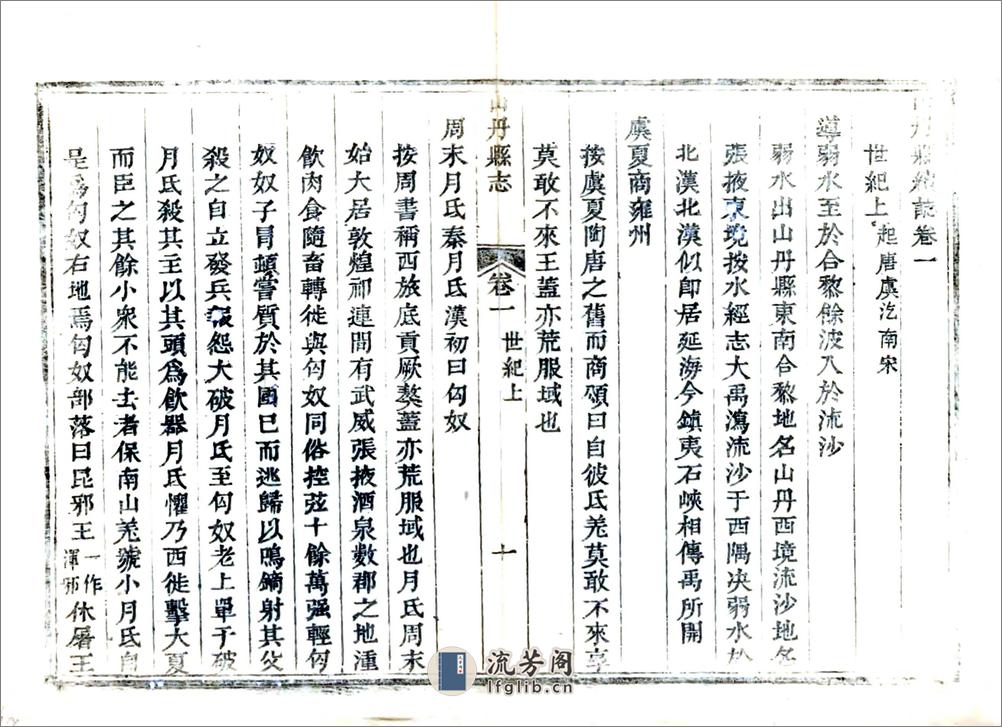 山丹縣續誌卷一
世紀上 起唐虞迄南宋
導弱水至於合黎餘波入於流沙
弱水出山丹縣東南合黎地名山丹西境流沙地名
張掖東境按水經志大禹瀉流沙于西隅决弱水於
北漢北漢似即居延海今鎮夷石峽相傳禹所開
虞夏商雍州
按虞夏陶唐之舊而商頌曰自彼氐羌莫敢不來享
莫敢不來王蓋亦荒服域也
山丹縣志 卷一 世紀上 十
周末月氏秦月氏漢初曰匈奴
按周書稱西旅底貢厥獒蓋亦荒服域也月氏周末
始大居敦煌祁連間有武威張掖酒泉數郡之地湩
飲肉食隨畜轉徙與匈奴同俗控弦十餘萬强輕匈
奴奴子冒頓嘗質於其國已而逃歸以鳴鏑射其父
殺之自立發兵報怨大破月氏至匈奴老上單于破
月氏殺其主以其頭爲飲器月氏懼乃西徙擊大夏
而臣之其餘小衆不能去者保南山羌號小月氏自
是爲匈奴右地焉匈奴部落曰昆邪王 一作渾邪 休屠王
流芳阁
lfglib.cn